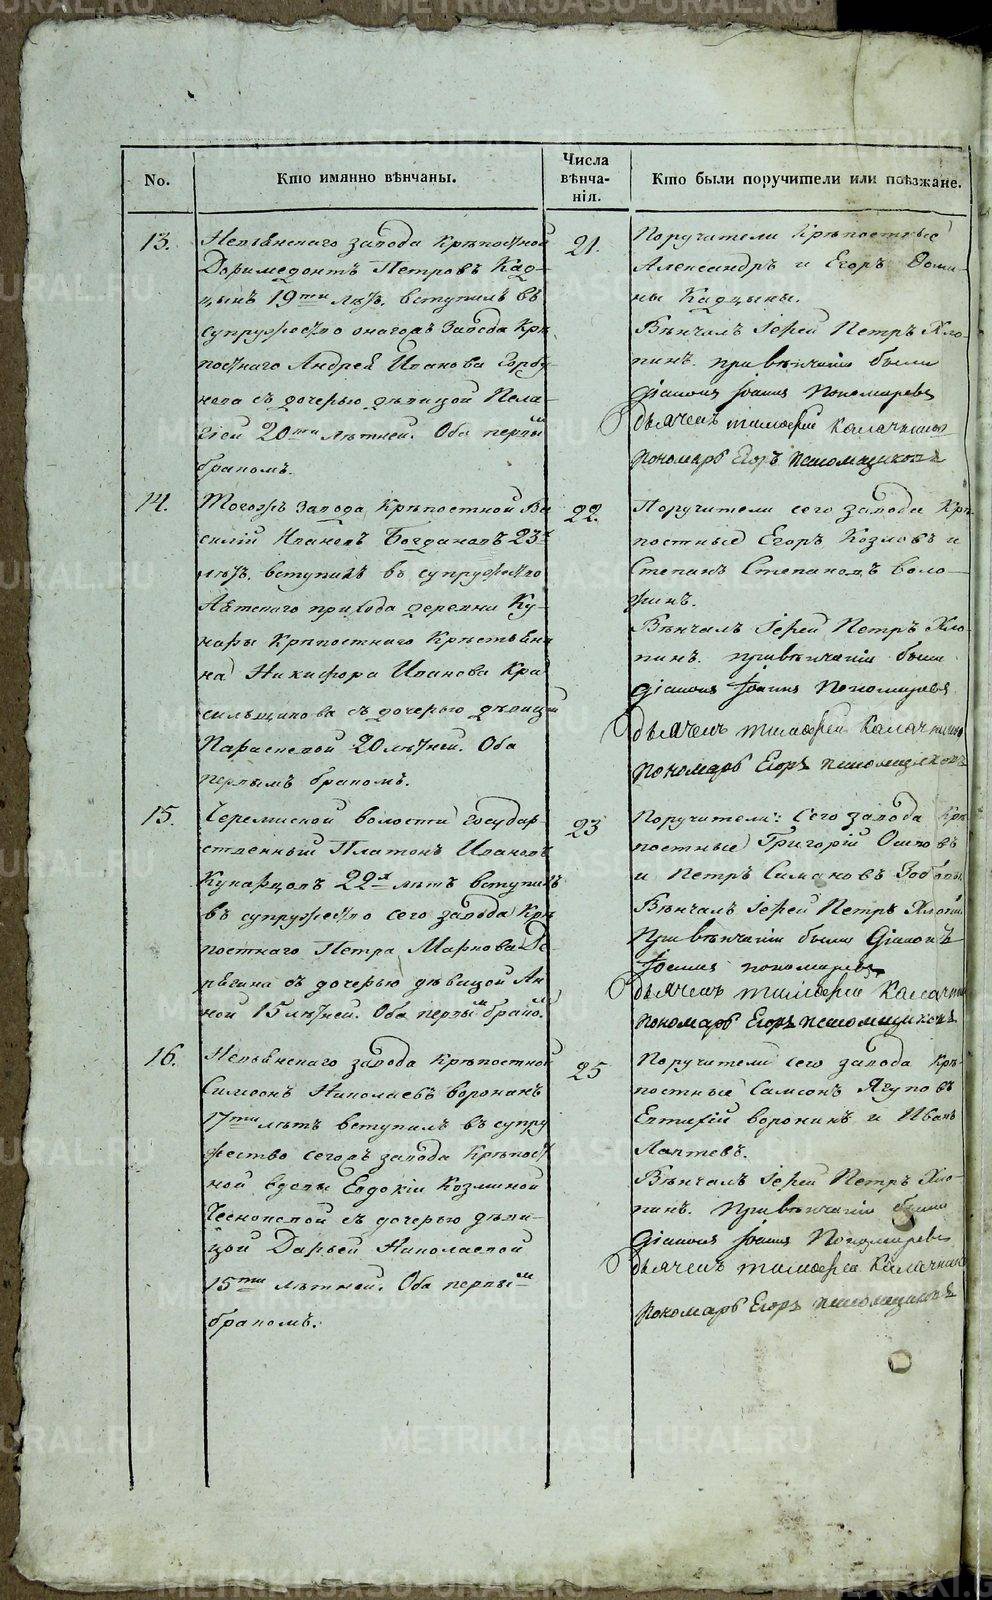 No.
Кто имянно вѣнчаны.
Числа
вѣнча-
нія.
Кто были поручители или поѣзжане.
13.
Невьянскаго завода Крѣпостной
Доримедонтъ Петровъ Кад-
цынъ 19ти лѣтъ. вступилъ въ
супружество онагожъ Завода Крѣ
постнаго Андрея Иванова Горбу
нова съ дочерью дѣвицой Пела-
гіей 20ти лѣтней. Оба первымъ
бракомъ.
21.
Поручители Крѣпостные
Александръ и Егоръ Фоми-
ны Кадцыны.
Вѣнчалъ Іерей Петръ Хло-
пинъ. при вѣнчаніи были
Діаконъ Іоаннъ Пономаревъ
дьячекъ Тимофей Калачник
Пономарь Егоръ
14.
Тогожъ Завода Крѣпостной Ва
силій Ивановъ Богдановъ 23х
лѣтъ. вступилъ въ супружество
Аятскаго прихода деревни Ку-
нары Крѣпостнаго Крестьяни
на Никифора Иванова Кра
сильщикова съ дочерью дѣвицей
Параскевой 20 лѣтней. Оба
первымъ бракомъ.
22.
Поручители сего завода Крѣ
постные Егоръ Козловъ и
Степанъ Степановъ Воло-
жинъ.
Вѣнчалъ Іерей Петръ Хло-
пинъ. при вѣнчаніи были
Діаконъ Іоаннъ Пономаревъ
дьячекъ Тимофей Калачник
Пономарь Егоръ
15.
Черемиской волости Государ-
ственный Платонъ Ивановъ
Кунарцовъ 22х лѣтъ вступилъ
въ супружество сего завода Крѣ
постнаго Петра Маркова Де
рягина съ дочерью дѣвицой Ан
ной 15 лѣтней. Оба первымъ бракомъ.
23
Поручители: Сего завода Крѣ
постные Григорій Осиповъ
и Петръ Симановъ
Вѣнчалъ Іерей Петръ Хлопин
При вѣнчаніи были Діаконъ
Іоаннъ Пономаревъ
дьячекъ Тимофей Калачник
Пономарь Егоръ
16.
Невьянскаго завода Крѣпостной
Симеонъ Николаевъ Воронинъ
17ти лѣтъ вступилъ въ супру
жество сегожъ завода Крѣпост
ной вдовы Евдокіи Козминой
Чесноковой съ дочерью дѣви-
цой Дарьей Николаевой
15ти лѣтней. Оба первымъ
бракомъ.
25
Поручители сего завода Крѣ-
постные Самсонъ Ягуповъ
Евтихій Воронинъ и Иванъ
Лаптевъ.
Вѣнчалъ Іерей Петръ Хло-
пинъ. При вѣнчаніи были
Діаконъ Іоаннъ Пономаревъ
дьячекъ Тимофей Калачник
Пономарь Егоръ
METRIKI.GASO-URAL.RU